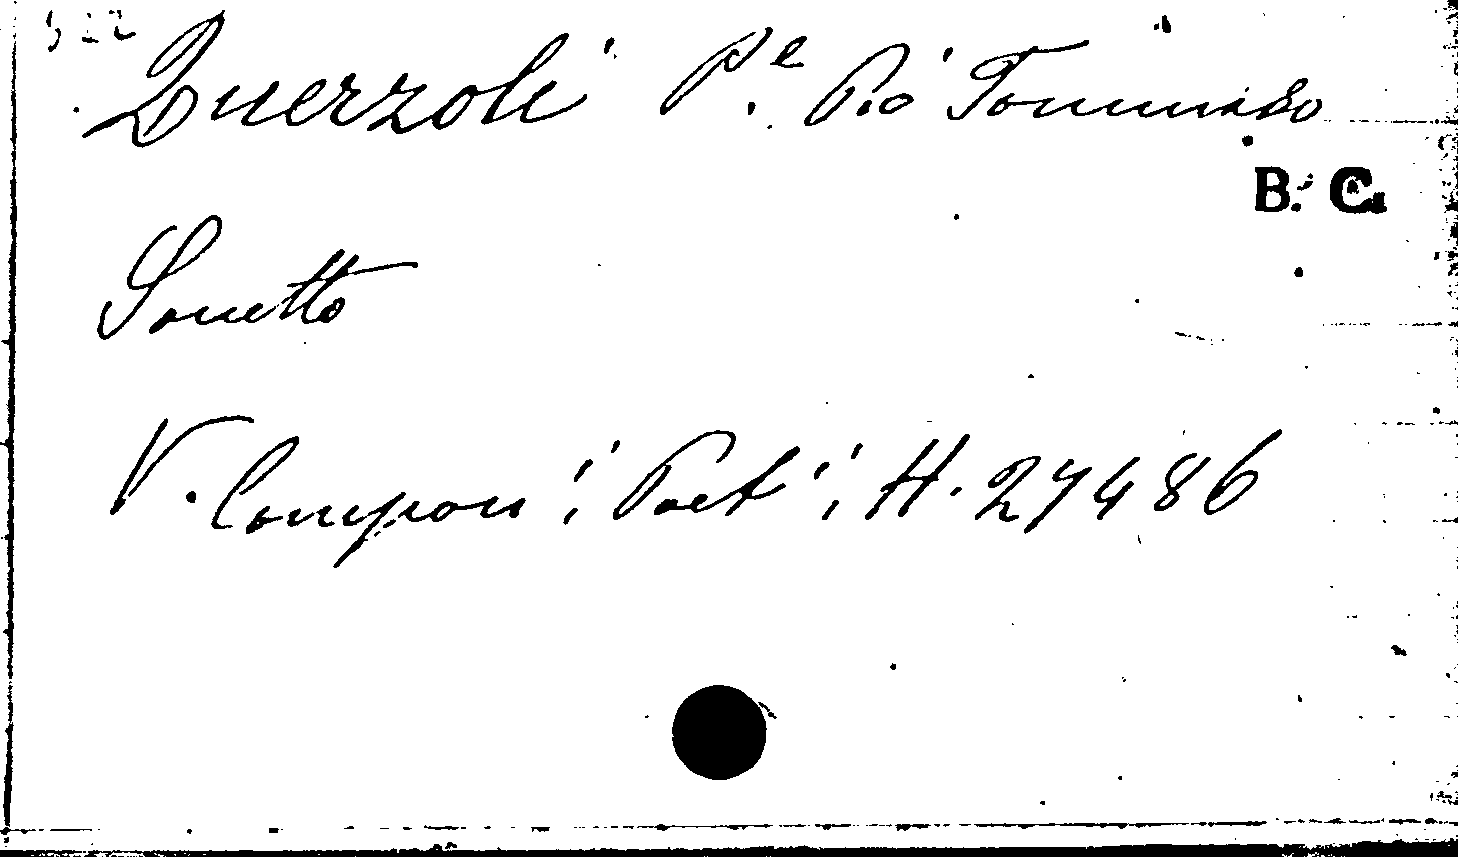 Querzoli P.e Pio Tommaso
B. C.
Sonetto
V. Compon: Poet: H. 27486